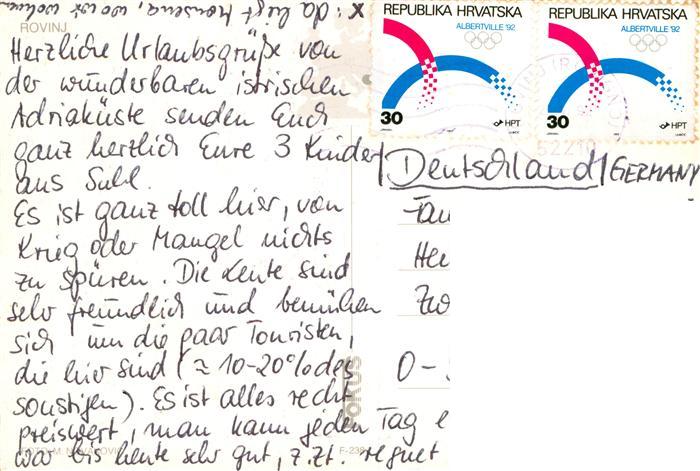 x: da liegt Monsena, wo wir wohnen
ROVINJ
Herzliche Urlaubsgrüße von
der wunderbaren istrischen
Adriaküste senden Euch
ganz herzlich Eure 3 Kinder
aus Suhl.
Es ist ganz toll hier, von
Krieg oder Mangel nichts
zu spüren. Die Leute sind
sehr freundlich und bemühen
sich um die paar Touristen,
die hier sind (≈ 10-20% des
sonstigen). Es ist alles recht
preiswert, man kann jeden Tag e
war bis heute sehr gut, z.Zt. regnet
REPUBLIKA HRVATSKA
ALBERTVILLE '92
30
HPT
REPUBLIKA HRVATSKA
ALBERTVILLE '92
30
HPT
52210
Deutschland / GERMANY
Fam
Her
Zw
O-
FOKUS
F-238